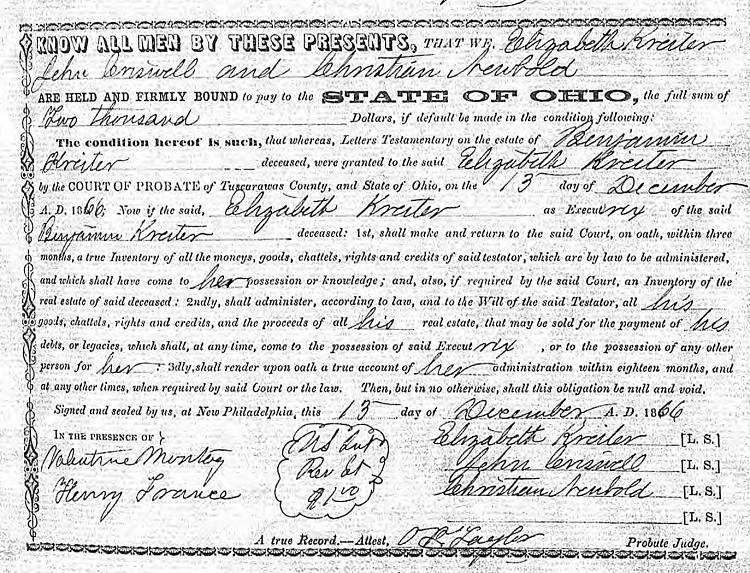 KNOW ALL MEN BY THESE PRESENTS, THAT WE, Elizabeth Kreiter
John Criswell and Christian Newbold
ARE HELD AND FIRMLY BOUND to pay to the STATE OF OHIO, the full sum of
Two thousand Dollars, if default be made in the condition following:
The condition hereof is such, that whereas, Letters Testamentary on the estate of Benjamin
Kreiter deceased, were granted to the said Elizabeth Kreiter
by the COURT OF PROBATE of Tuscarawas County, and State of Ohio, on the 15 day of December
A. D. 1866; Now if the said, Elizabeth Kreiter as Executrix of the said
Benjamin Kreiter deceased: 1st, shall make and return to the said Court, on oath, within three
months, a true Inventory of all the moneys, goods, chattels, rights and credits of said testator, which are by law to be administered,
and which shall have come to her possession or knowledge; and, also, if required by the said Court, an Inventory of the
real estate of said deceased: 2ndly, shall administer, according to law, and to the Will of the said Testator, all his
goods, chattels, rights and credits, and the proceeds of all his real estate, that may be sold for the payment of his
debts, or legacies, which shall, at any time, come to the possession of said Executrix, or to the possession of any other
person for her: 3dly, shall render upon oath a true account of her administration within eighteen months, and
at any other times, when required by said Court or the law. Then, but in no otherwise, shall this obligation be null and void.
Signed and sealed by us, at New Philadelphia, this 15 day of December A. D. 1866
IN THE PRESENCE OF
Valentine Montag
Henry France
US Int
Rev St
$1.00
Elizabeth Kreiter [L. S.]
John Criswell [L. S.]
Christian Newbold [L. S.]
[L. S.]
A true Record.—Attest, O P Taylor Probate Judge.